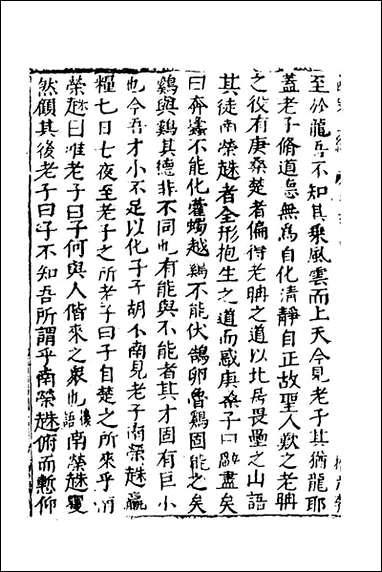 至於龍吾不知其乘風雲而上天今見老子其猶龍耶
蓋老子脩道惪無爲自化清靜自正故聖人歎之老聃
之役有庚桑楚者偏得老聃之道以北居畏壘之山語
其徒南榮趎者全形抱生之道而感庚桑子曰辭盡矣
曰奔蜂不能化藿蠋越鷄不能伏鵠卵魯鷄固能之矣
鷄與鷄其德非不同也有能與不能者其才固有巨小
也今吾才小不足以化子子胡不南見老子南榮趎贏
糧七日七夜至老子之所老子曰子自楚之所來乎
榮趎曰唯老子曰子何與人偕來之衆也南榮趎懼
然顧其後老子曰子不知吾所謂乎南榮趎俯而慙仰